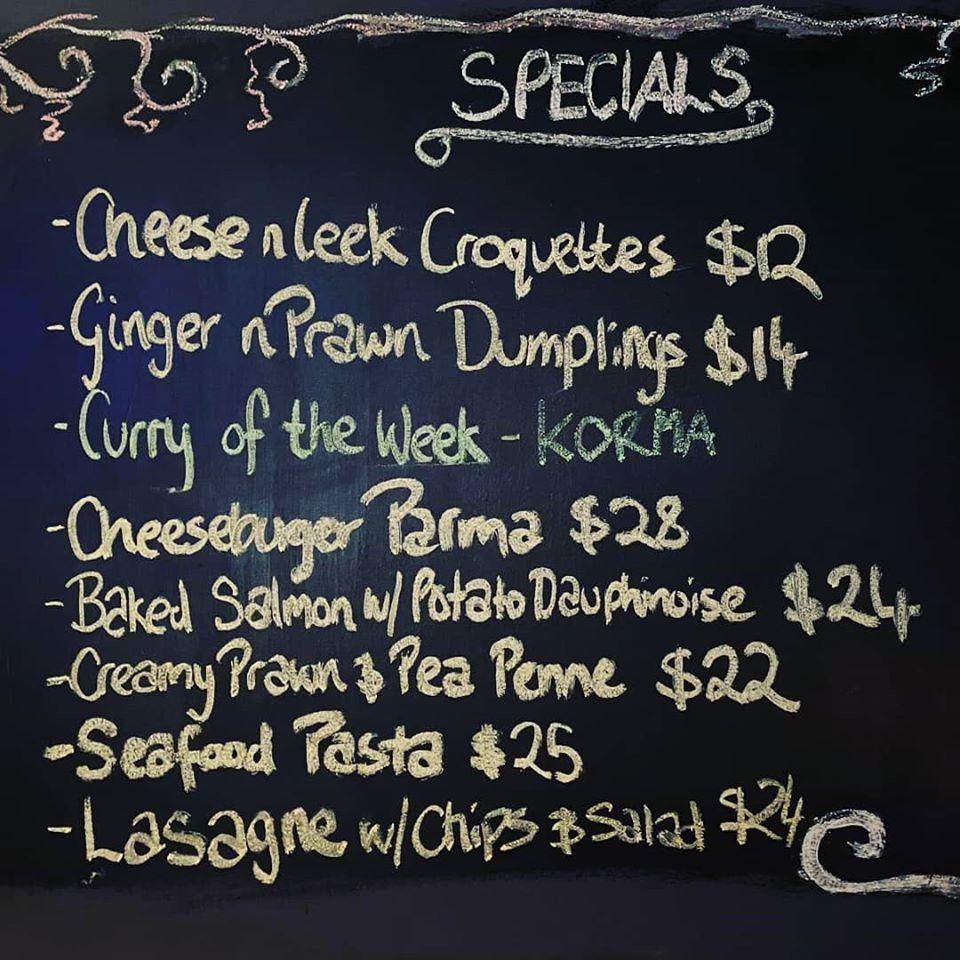 SPECIALS
-Cheese n Leek Croquettes $12
-Ginger n Prawn Dumplings $14
-Curry of the Week - KORMA
-Cheeseburger Parma $28
-Baked Salmon w/ Potato Dauphinoise $24
-Creamy Prawn & Pea Penne $22
-Seafood Pasta $25
-Lasagne w/ Chips & Salad $24